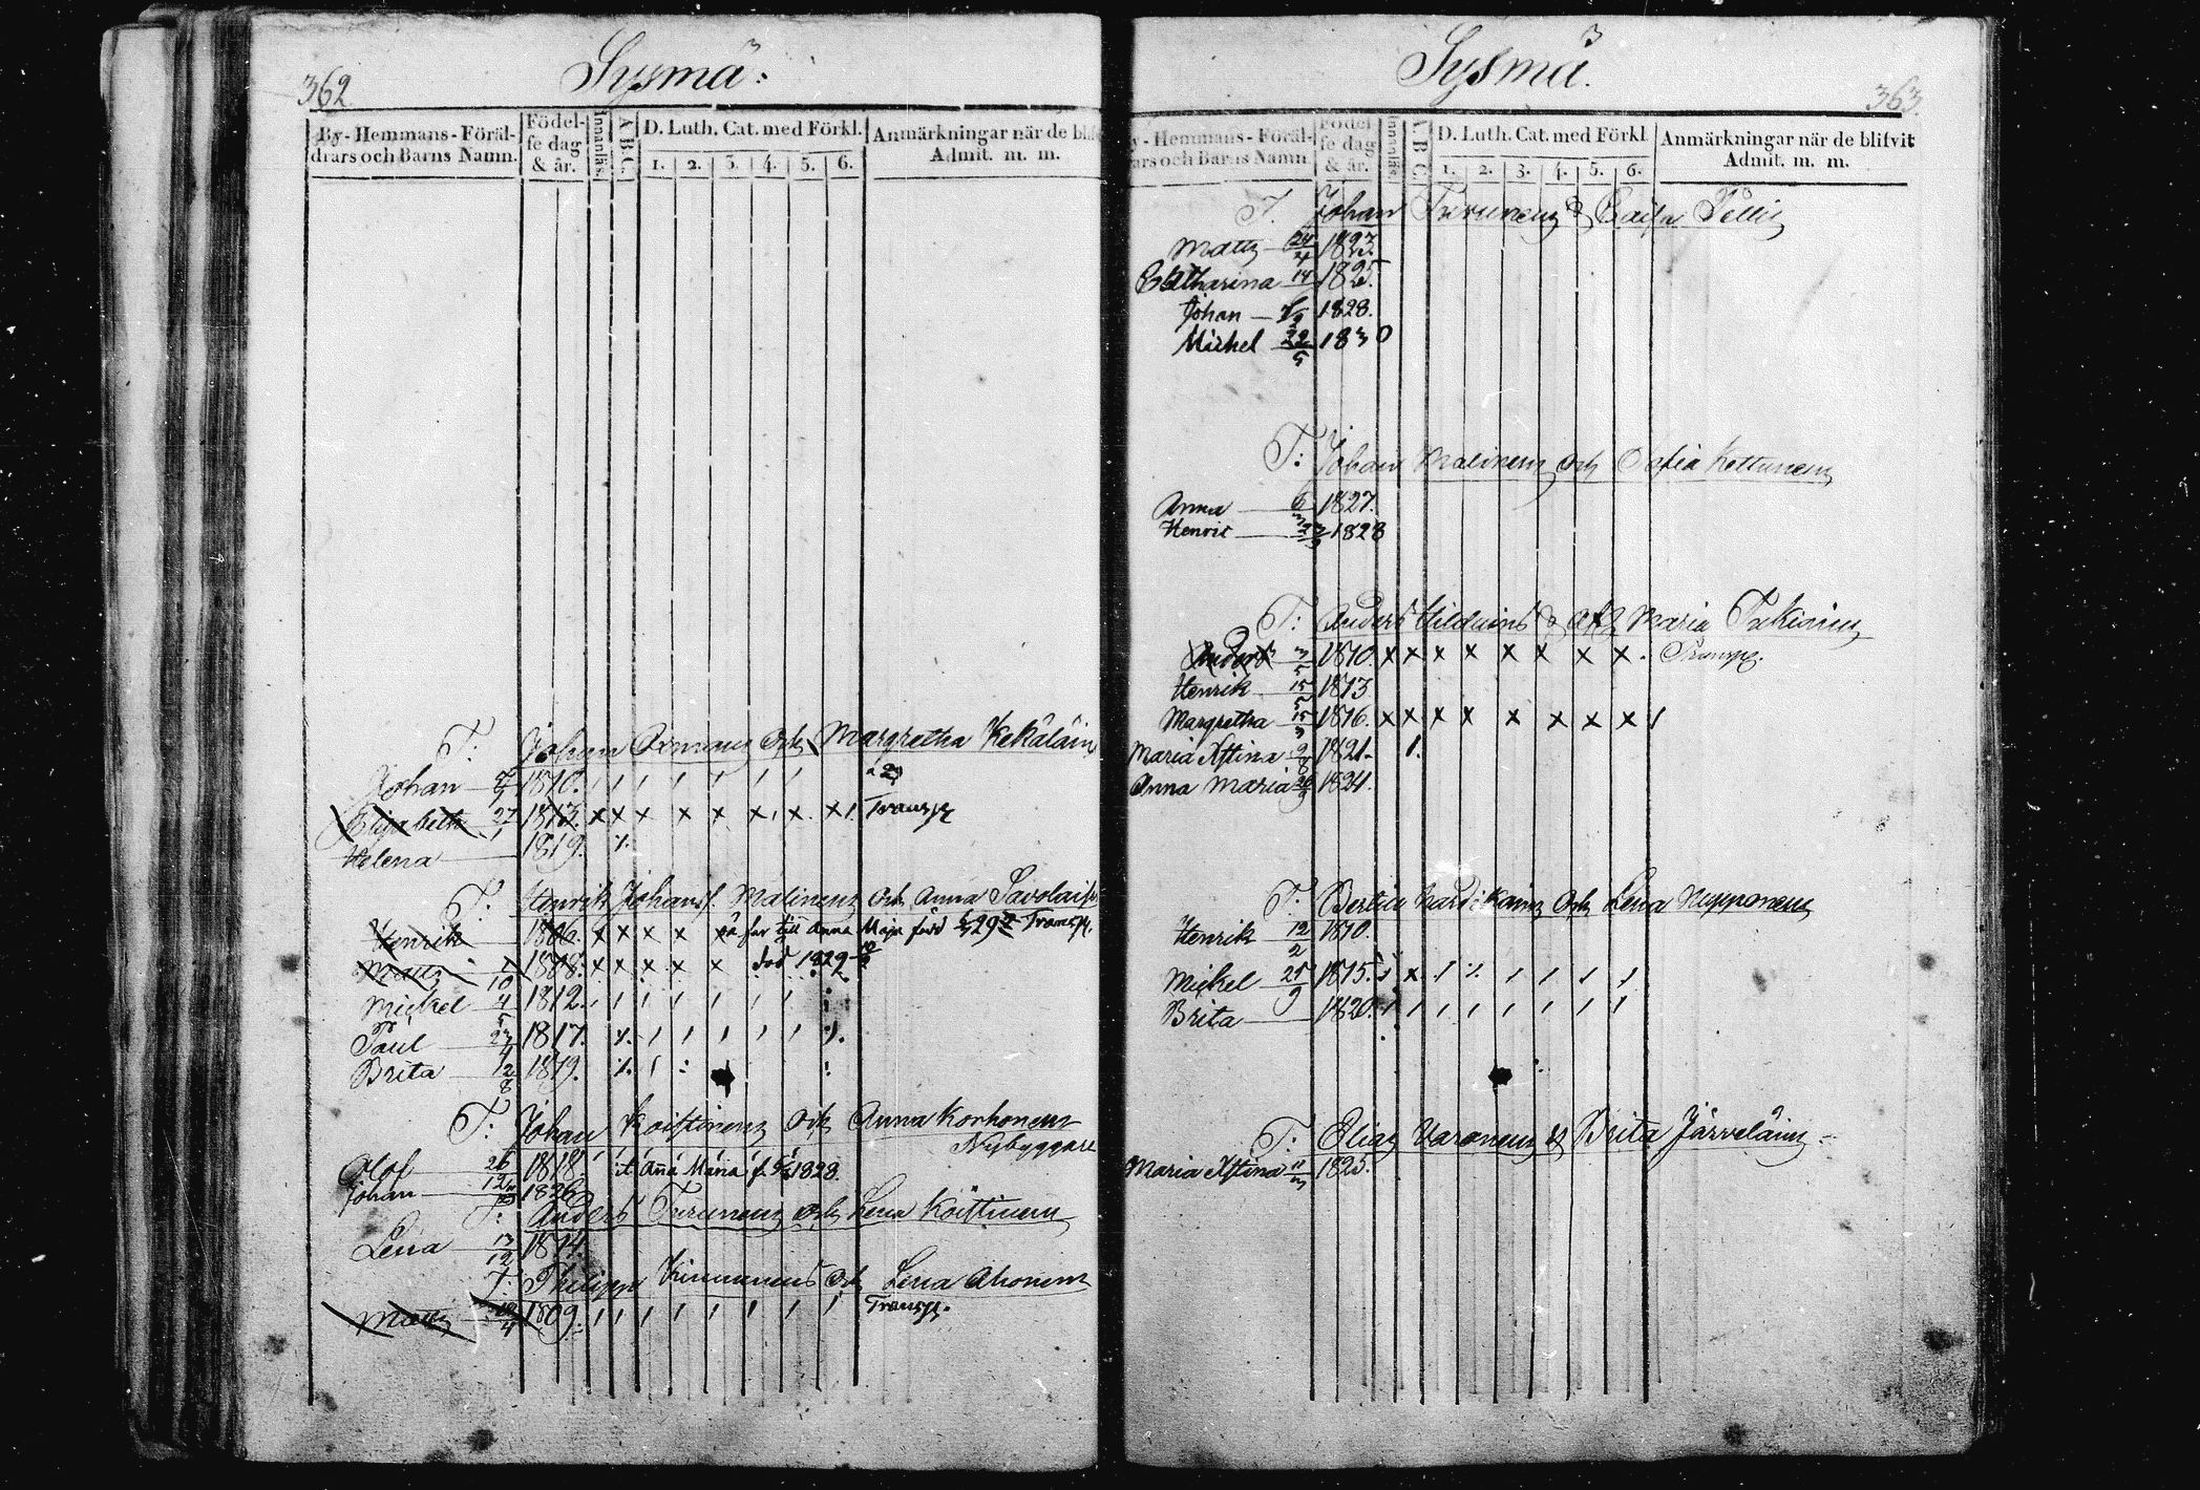 362
Sysmä 3
By-Hemmans-Föräl-
drars och Barns Namn.
Födel-
se dag
& år.
Innanläs.
A.B.C.
D. Luth. Cat. med Förkl.
1. 2. 3. 4. 5. 6.
Anmärkningar när de bli
Admit. m. m.
T: Johan Och Margretha Kekäläin
Johan 1810.
Elisabeth 27 1813. x x x x x x x x Transp
Helena 1819.
T: Henrik Johans. Malinen Och Anna Savolai
Henrik 1806. x x x x far till Anna Maja född 29 Transp.
Matts 1808. x x x x x död 1829
Mickel 4 1812.
Paul 23 1817.
Brita 12/8 1819.
T: Johan Koistinen Och Anna Korhonen
Nybyggare
Olof 26/12 1818. Anna Maria f. 1828.
Johan 1826
T: Anders Turunen och Lena Koistinen
Lena 13/12 1814.
T: Philipp Och Lena Ahonen
Matts /4 1809. Transp.
Sysmä 3
363
y-Hemmans-Föräl-
ars och Barns Namn.
Födel
se dag
& år.
Innanläs.
A.B.C.
D. Luth. Cat. med Förkl
1. 2. 3. 4. 5. 6.
Anmärkningar när de blifvit
Admit. m. m.
T. Johan Turunen & Caisa
Matts 24/4 1823.
Catharina 14 1825.
Johan 1828.
Michel 22/5 1830
T: Johan Malinen Och Kettunen
Anna 6 1827.
Henric 1828
T: Anders & Maria
Anders 3/5 1810. x x x x x x x x Transp.
Henrik 15 1813
Margretha 15 1816. x x x x x x x x
Maria Kstina 9/8 1821.
Anna Maria 1824.
T: Och Lena Nupponen
Henrik 12/2 1810.
Mickel 21/9 1815.
Brita 1820.
T: Elias Varonen & Brita Järveläin
Maria Kstina 11 1825.